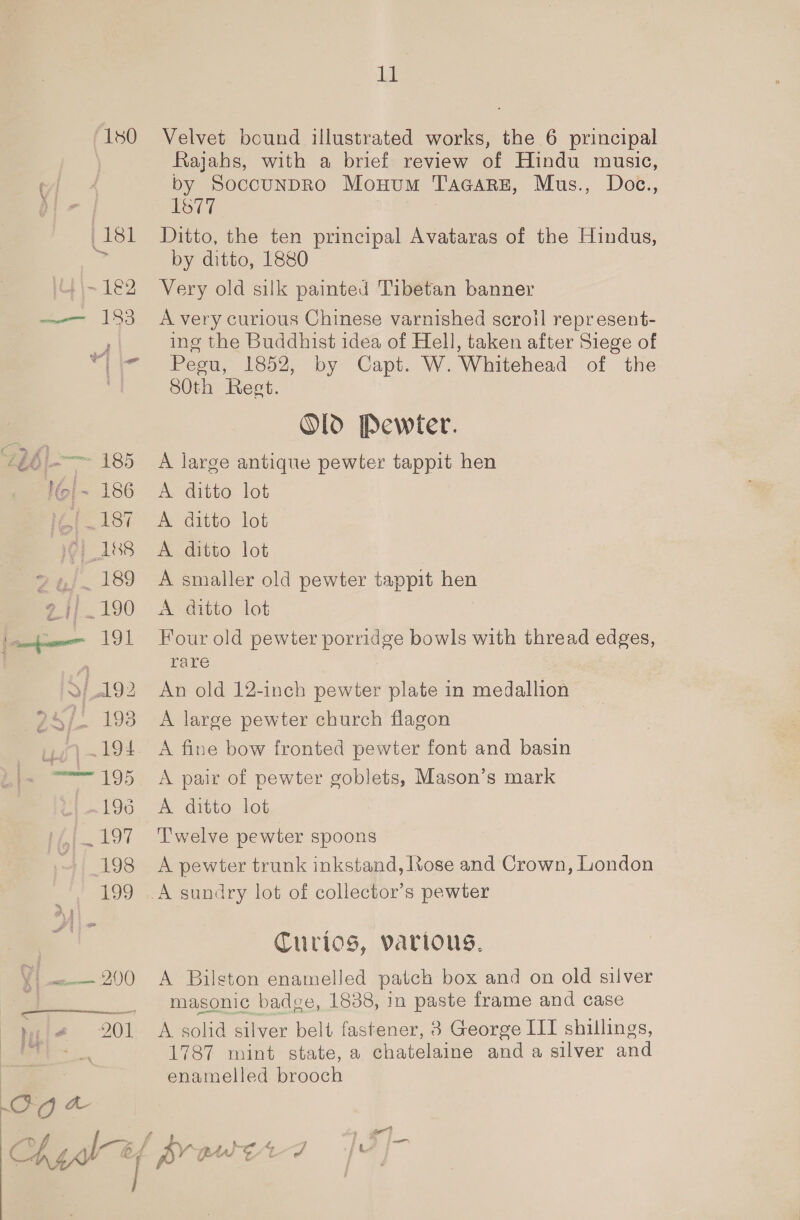 11
180 Velvet bound illustrated works, the 6 principal
Rajahs, with a brief review of Hindu music,
by SOCCUNDRO MOHUM TAGARE, Mus., Doc.,
1877
181 Ditto, the ten principal Avataras of the Hindus,
by ditto, 1880
182 Very old silk painted Tibetan banner
183 A very curious Chinese varnished scroll represent-
ing the Buddhist idea of Hell, taken after Siege of
Pegu, 1852, by Capt. W. Whitehead of the
80th Regt.
Old Pewter.
185 A large antique pewter tappit hen
16/- 186 A ditto lot
187 A ditto lot
188 A ditto lot
189 A smaller old pewter tappit hen
190 A ditto lot
191 Four old pewter porridge bowls with thread edges,
rare
192 An old 12-inch pewter plate in medallion
25/- 193 A large pewter church flagon
194 A fine bow fronted pewter font and basin
195 A pair of pewter goblets, Mason's mark
196 A ditto lot
197 Twelve pewter spoons
198 A pewter trunk inkstand, Rose and Crown, London
199 A sundry lot of collector's pewter
Curios, various.
200 A Bilston enamelled patch box and on old silver
masonic badge, 1838, in paste frame and case
201 A solid silver belt fastener, 3 George III shillings,
1787 mint state, a chatelaine and a silver and
enamelled brooch